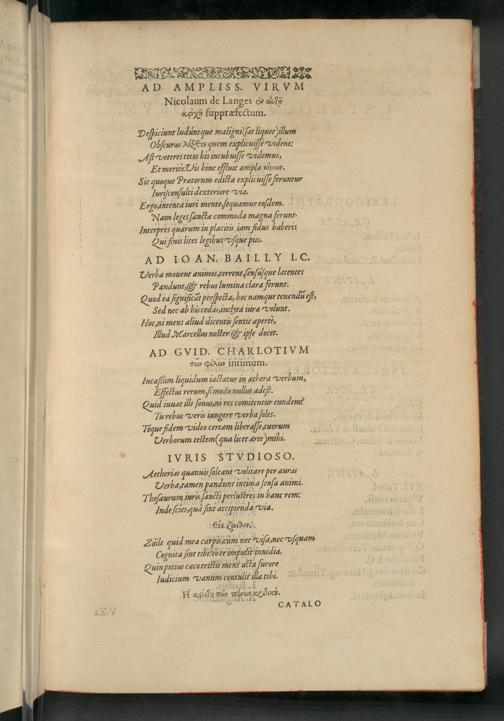 AD AMPLISS. VIRVM
Nicolaum de Langes ἐν αὐτῇ
ἀρχῇ suppræfectum.
Despiciunt ludúntque maligni (sat liquet) illum
Obscuras λέξεις quem explicuisse vident:
Ast veteres tetos his incubuisse videmus,
Et meritò. Vis hinc effluit ampla
Sic quoque Prætorum edicta explicuisse feruntur
Iurisconsulti dexteriore via.
Ergo intenta iuri mente, sequamur eosdem.
Nam leges sanctæ commoda magna ferunt.
Interpres quarum in placitis iam fidus haberis
Qui finis lites legibus vsque piis.
AD IOAN. BAILLY I.C.
Verba mouent animos, terrent, sensúsque latentes
Pandunt, & rebus lumina clara ferunt.
Quod ea significẽt perspecta, hoc namque tenendũ est,
Sed nec ab his cedas, inclyta iura volunt.
Hoc, ni mens aliud dicentis sentit apertè,
Illud Marcellus noster & ipse docet.
AD GVID. CHARLOTIVM
τῶν φίλων intimum.
Incassùm liquidum iactatur in æthera verbum,
Effectus rerum, si modo nullus adest.
Quid iuuat ille sonus, ni res comitentur eundem?
Tu rebus veris iungere verba soles.
Túque fidem video certam liberasse, tuerum
Verborum testem (qua licet arte) mihi.
IVRIS STVDIOSO.
Aetherias quamuis soleant volitare per auras
Verba, tamen pandunt intima sensa animi.
Thesaurum iuris sancti perlustres in hanc rem:
Inde scies, quà sint accipienda via.
Εἰς ζωΐλον.
Zoile quid mea carpis, cum nec visa, nec vsquam
Cognita sint tibi? te impulit inuidia.
Quin potius cæco tristis mens acta furore
Iudicium vanum contulit illa tibi.
CATALO